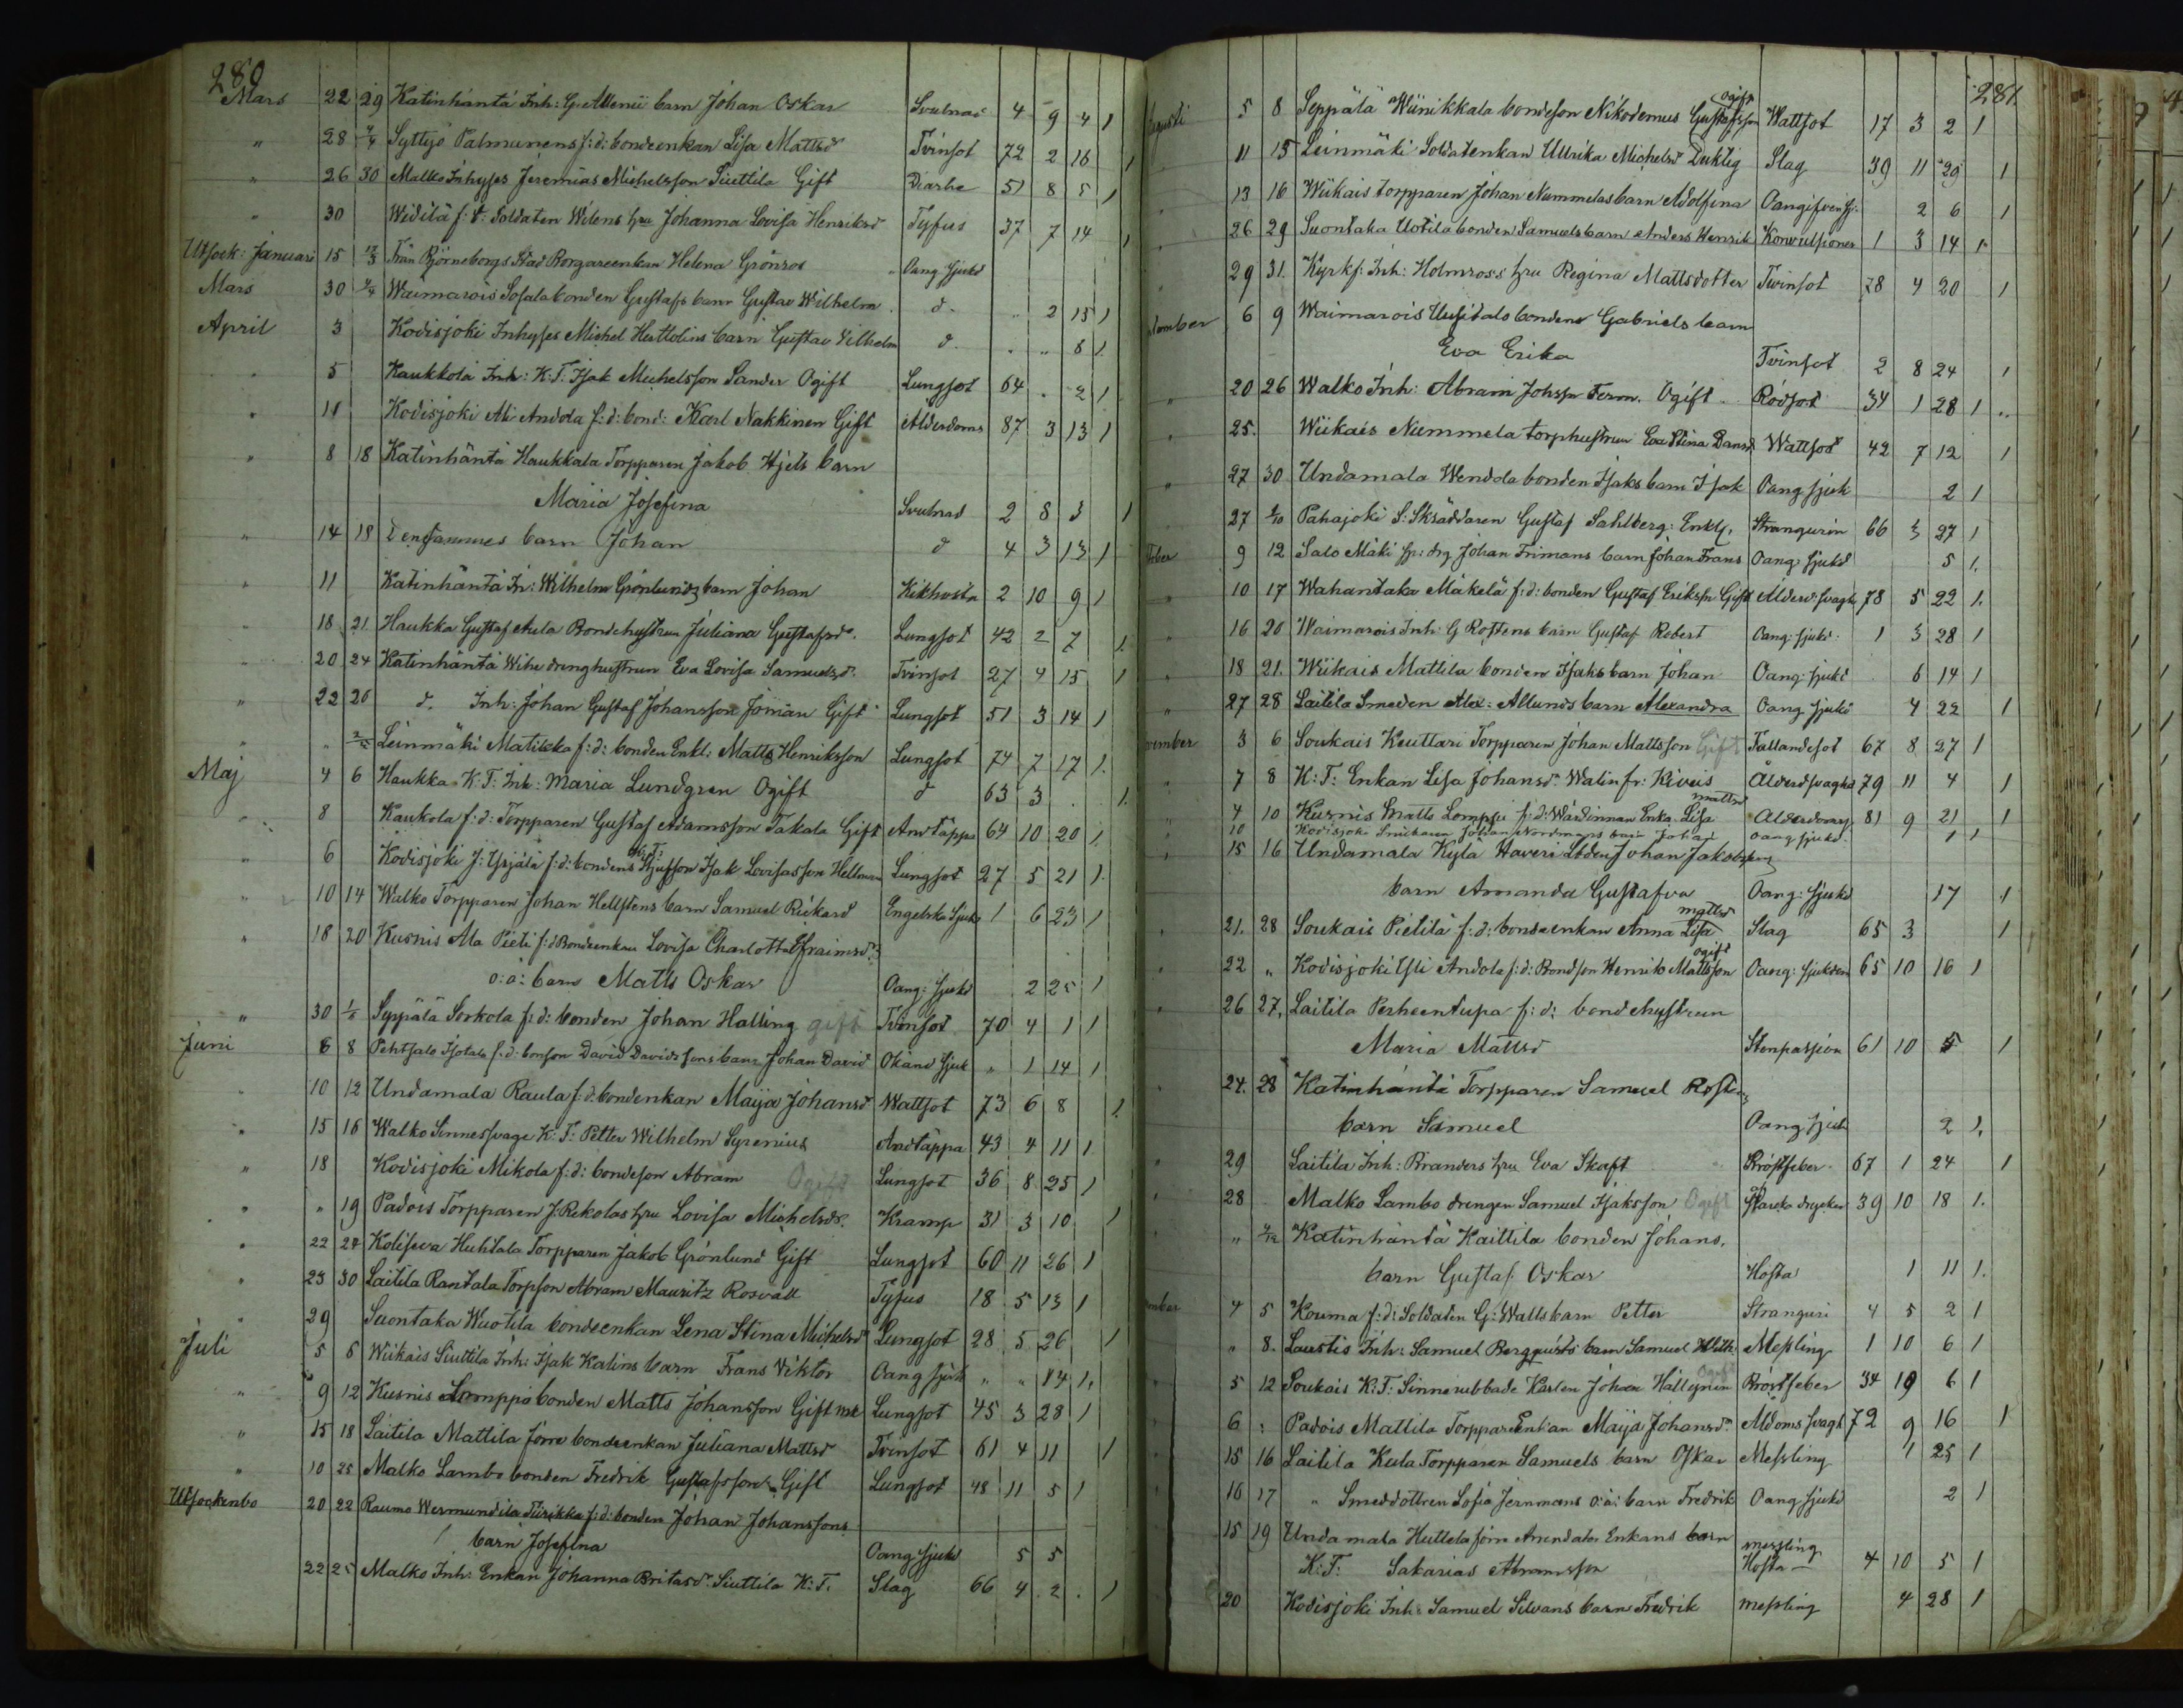 280
Mars 22 29 Katinhäntä Inh: G. Allenii barn Johan Oskar Svulnad 4 9 4 1
" 28 2/4 Syttyö Palmunens f: d: bondeenkan Lisa Mattsdr Tvinsot 72 2 16 1
" 26 30 Malko Inhyses Jeremias Michelsson Siuttila Gift Diarhe 51 8 5 1
" 30 Widilä f: d: Soldaten Wilens hru Johanna Lovisa Henriksd Tyfus 37 7 14 1
Utsock: Januari 15 12/3 Från Björneborgs Stad Borgareenkan Helena Grönros Oang. sjukd
Mars 30 2/4 Waimarois Sofala bonden Gustafs barn Gustav Wilhelm d. " 2 15 1
April 3 Kodisjoki Inhyses Michel Herttolins barn Gustav Vilhelm d. " " 8 1.
" 5 Kaukkola Inh: K: T: Isak Michelsson Sander Ogift Lungsot 64 . 2 1
" 11 Kodisjoki Ali Andola f: d: bond: Karl Nakkinen Gift Ålderdoms 87 3 13 1
" 8 18 Katinhäntä Haukkala Torpparen Jakob Hjels barn
Maria Josefina Svulnad 2 8 3 1
" 14 18 Densammes barn Johan d 4 3 13 1
" 11 Katinhäntä In: Wilhelm Grönlunds barn Johan Kikhosta 2 10 9 1
" 18 21 Haukka Gustaf Anela Bondehustrun Juliana Gustafsdr. Lungsot 42 2 7 1.
20 24 Katinhäntä Wihu drenghustrun Eva Lovisa Samuelsd. Tvinsot 27 4 15 1
" 22 26 d. Inh: Johan Gustaf Johansson Joman Gift Lungsot 51 3 14 1
" " Leinmäki Matikka f: d: bonden Enkl: Matts Henriksson Lungsot 74 7 17 1.
Maj 4 6 Haukka K: T: Inh: Maria Lundgren Ogift d 63 3 . 1.
8 Kaukola f: d: Torpparen Gustaf Adamsson Takala Gift Andtäppa 64 10 20 1
6 Kodisjoki J: Yrjälä f: d: bondens K: T: Isak Lovisasson Hellman Lungsot 27 5 21 1
10 14 Walko Torpparen Johan Hellstens barn Samuel Rickard Engelska sjuk 1 6 23 1
" 18 20 Kusnis Ala Pieti f: d Bondeenkan Lovisa Charlotta Efraimsd:s
o: ä: barn Matts Oskar Oang: sjukd 2 25 1
" 30 1/6 Syppälä Sorkola f: d: bonden Johan Halling gift Tvinsot 70 4 1 1
Juni 6 8 Pehtsalo Isotalo f: d: bonson David Davidssons barn Johan David Okänd sjuk " 1 14 1
10 12 Undamala Raula f: d: bondenkan Maija Johansd Wattsot 73 6 8 1.
" 15 16 Walko Sinnessvage K: T: Petter Wilhelm Syrenius Andtäppa 43 4 11 1
" 18 Kodisjoki Mikola f: d: bondeson Abram Ogift Lungsot 36 8 25 1
" " 19 Padois Torpparen J. Rekolas hru Lovisa Michelsdr. Kramp 31 3 10 1
" 22 27 Koliseva Huhtala Torpparen Jakob Grönlund Gift Lungsot 60 11 26 1
" 23 30 Laitila Rantala Torpson Abram Mauritz Rosvall Tyfus 18 5 13 1
" 29 Suontaka Wuotila bondeenkan Lena Stina Michelsd Lungsot 28 5 26 1
Juli 5 6 Wiikais Siuttila Inh: Isak Kalins barn Frans Viktor Oang sjuk " " 14 1.
" 9 12 Kusnis Lomppi bonden Matts Johansson Gift Lungsot 45 3 28 1
" 15 18 Laitila Mattila förre bondeenkan Juliana Mattsd Tvinsot 61 4 11 1
" 10 25 Malko Lambo bonden Fredrik Gustafsson Gift Lungsot 48 11 5 1
Utsockenbo 20 22 Raumo Wermundila Tiirikka f: d: bonden Johan Johanssons
barn Josefina Oang sjukd 5 5
22 25 Malko Inh: Enkan Johanna Britasd. Siuttila K: T. Slag 66 4 2 . 1
281
5 8 Seppälä Wiinikkala bondeson Nikodemus Gustafsson Ogift Wattsot 17 3 2 1
11 15 Leinmäki Soldatenkan Ullrika Michelsd Duktig Slag 39 11 29 1
13 16 Wiikais torpparen Johan Nummelas barn Adolfina Oangifven sj. 2 6 1
26 29 Suontaka Uotila bonden Samuels barn Anders Henrik Konvulsioner 1 3 14 1
29 31. Kyrkf: Inh: Holmross hru Regina Mattsdotter Tvinsot 28 4 20 1
6 9 Waimarois Uusitalo bondens Gabriels barn
Eva Erika Tvinsot 2 8 24 1
" 20 26 Walko Inh: Abram Johssn Term. Ogift Rödsot 34 1 28 1
" 25. Wiikais Nummela torphustrun Eva Stina Dansd. Wattsot 42 7 12 1
" 27 30 Undamala Wendola bonden Isaks barn Isak Oang sjuk 2 1
27 2/10 Pahajoki S: Skräddaren Gustaf Sahlberg: Enkl. Strangurin 66 3 27 1
9 12 Salo Mäki sp: drg Johan Frimans barn Johan Frans Oang sjukd 5 1.
" 10 17 Wahantaka Mäkelä f: d: bonden Gustaf Erikssn Gift Ålderd: svagh 78 5 22 1.
" 16 20 Waimarois Inh: G Rostens barn Gustaf Robert Oang: sjukd: 1 3 28 1
" 18 21. Wiikais Mattila bonden Isaks barn Johan Oang: sjukd 6 14 1
" 27 28 Laitila Smeden Alex: Allunds barn Alexandra Oang. sjukd 4 22 1
3 6 Soukais Keuttari Torpparen Johan Mattsson Gift Fallandesot 67 8 27 1
" 7 8 K: T: Enkan Lisa Johansdr Walin fr: Kiveis Ålderdsvaghd 79 11 4 1
" 4 10 Kusnis Matts Lompju f: d: Wärdinnan Enka Lisa Mattsd Ålderdoms 81 9 21 1
10 Kodisjoki Johan Nordmans barn Johan oang sjukd. 1 1
15 16 Undamala Kylä Haveri Lbden Johan Jakobssons
barn Amanda Gustafva Oang: sjukd 17 1
21. 28 Soukais Pietilä f: d: bondeenkan Anna Lisa Mattsd Slag 65 3 1
22 " Kodisjoki Yli Andola f: d: Bondson Henrik Mattsson ogift Oang: sjukdom 65 10 16 1
26 27. Laitila Perheentupa f: d: bondehustrun
Maria Mattsd Stenpassion 61 10 5 1
24. 28 Katinhäntä Torpparen Samuel Rostens
barn Samuel Oang sjuk 2 1.
29 Laitila Inh: Branders hru Eva Skaft Bröstfeber 67 1 24 1
28 Malko Lambo drengen Samuel Isaksson Ogift starka drycker 39 10 18 1.
" 2/12 Katinhäntä Kaittila bonden Johans,
barn Gustaf Oskar Hosta 1 11 1.
4 5 Kouma f: d: Soldaten G: Walls barn Petter Stranguri 4 5 2 1
" 8. Laustis Inh: Samuel Bergquists barn Samuel Wilh Messling 1 10 6 1
5 12 Soukais K: T: Sinnerubbade Karlen Johan Hällgren Ogift Bröstfeber 34 10 6 1
6 " Padois Mattila Torppareenkan Maija Johansdr Åldoms svagh 72 9 16 1
15 16 Laitila Kula Torpparen Samuels barn Oskar Messling 1 25 1
16 17 " Smeddottren Sofia Jernmans o: ä: barn Fredrik Oang sjukd 2 1
15 19 Undamala Huttola förre Arrendator Enkans barn
K: T: Sakarias Abramsson Messling Hosta 4 10 5 1
20 Kodisjoki Inh: Samuel Silvans barn Fredrik Messling 4 28 1